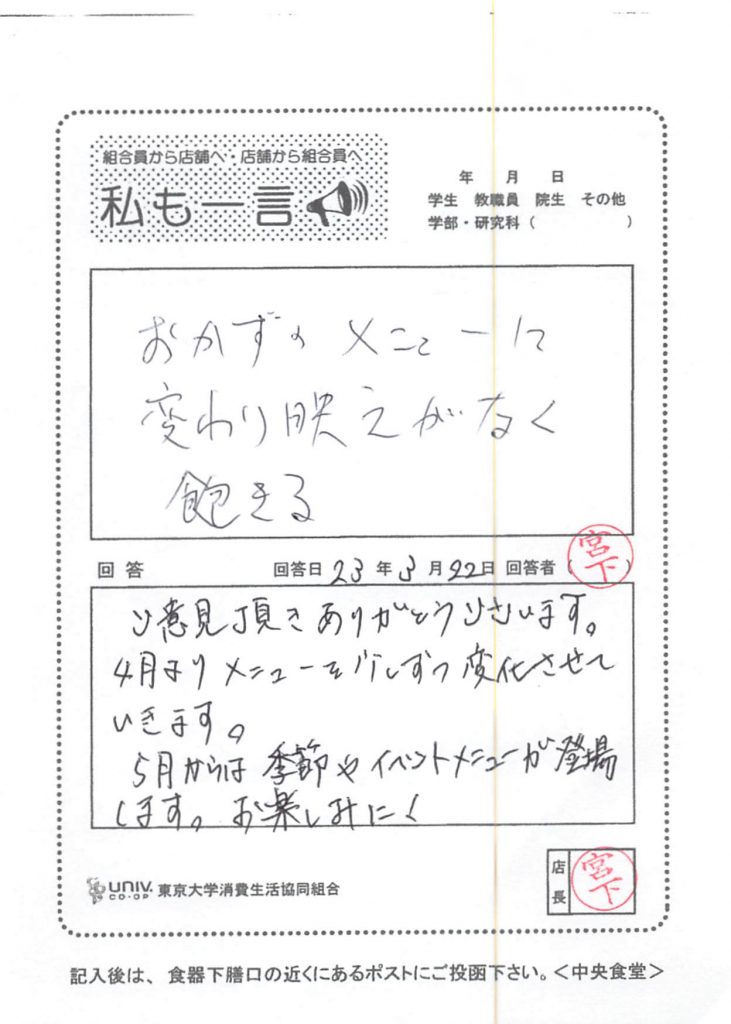 組合員から店舗へ・店舗から組合員へ
私も一言
年 月 日
学生 教職員 院生 その他
学部・研究科 ( )
おかずのメニューに
変わり映えがなく
飽きる
回答 回答日 23 年 3 月 22 日 回答者 ( 宮下 )
ご意見頂きありがとうございます。
4月よりメニューを少しずつ変化させて
いきます。
5月からは季節やイベントメニューが登場
します。お楽しみに!
UNIV. CO-OP 東京大学消費生活協同組合
店長 宮下
記入後は、食器下膳口の近くにあるポストにご投函下さい。<中央食堂>